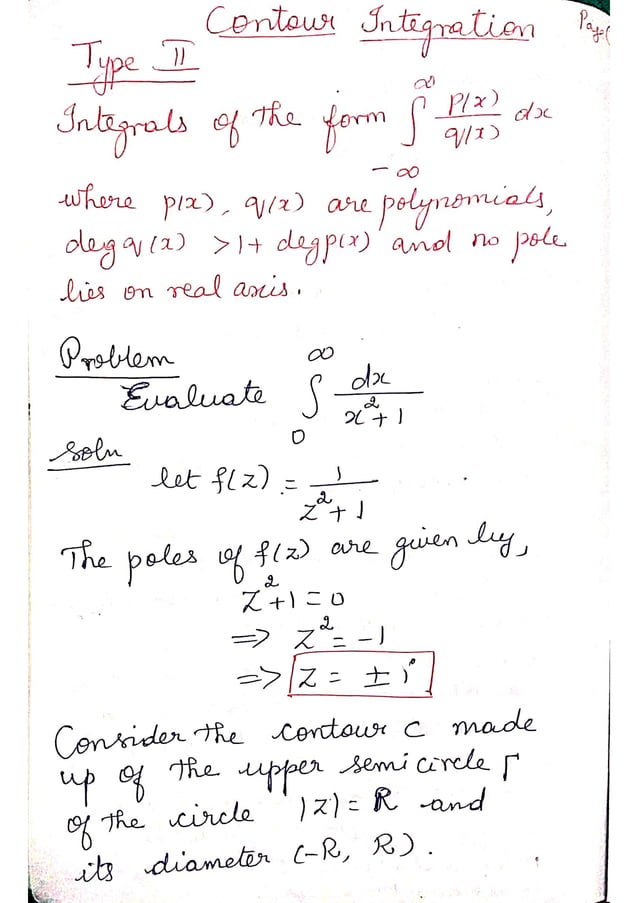 Contour Integration
Page(
Type II
Integrals of the form ∫_{-∞}^{∞} p(x)/q(x) dx
where p(x), q(x) are polynomials,
deg q(x) > 1 + deg p(x) and no pole
lies on real axis.
Problem
Evaluate ∫_0^∞ dx/(x²+1)
Soln
let f(z) = 1/(z²+1)
The poles of f(z) are given by,
z²+1=0
=> z² = -1
=> z = ± i
Consider the contour C made
up of the upper semi circle Γ
of the circle |z| = R and
its diameter (-R, R).